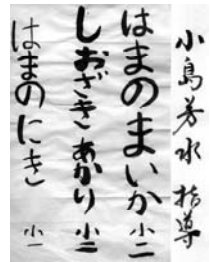 小島芳水 指導
はまのまいか 小二
しおざき あかり 小二
はまのにき 小一